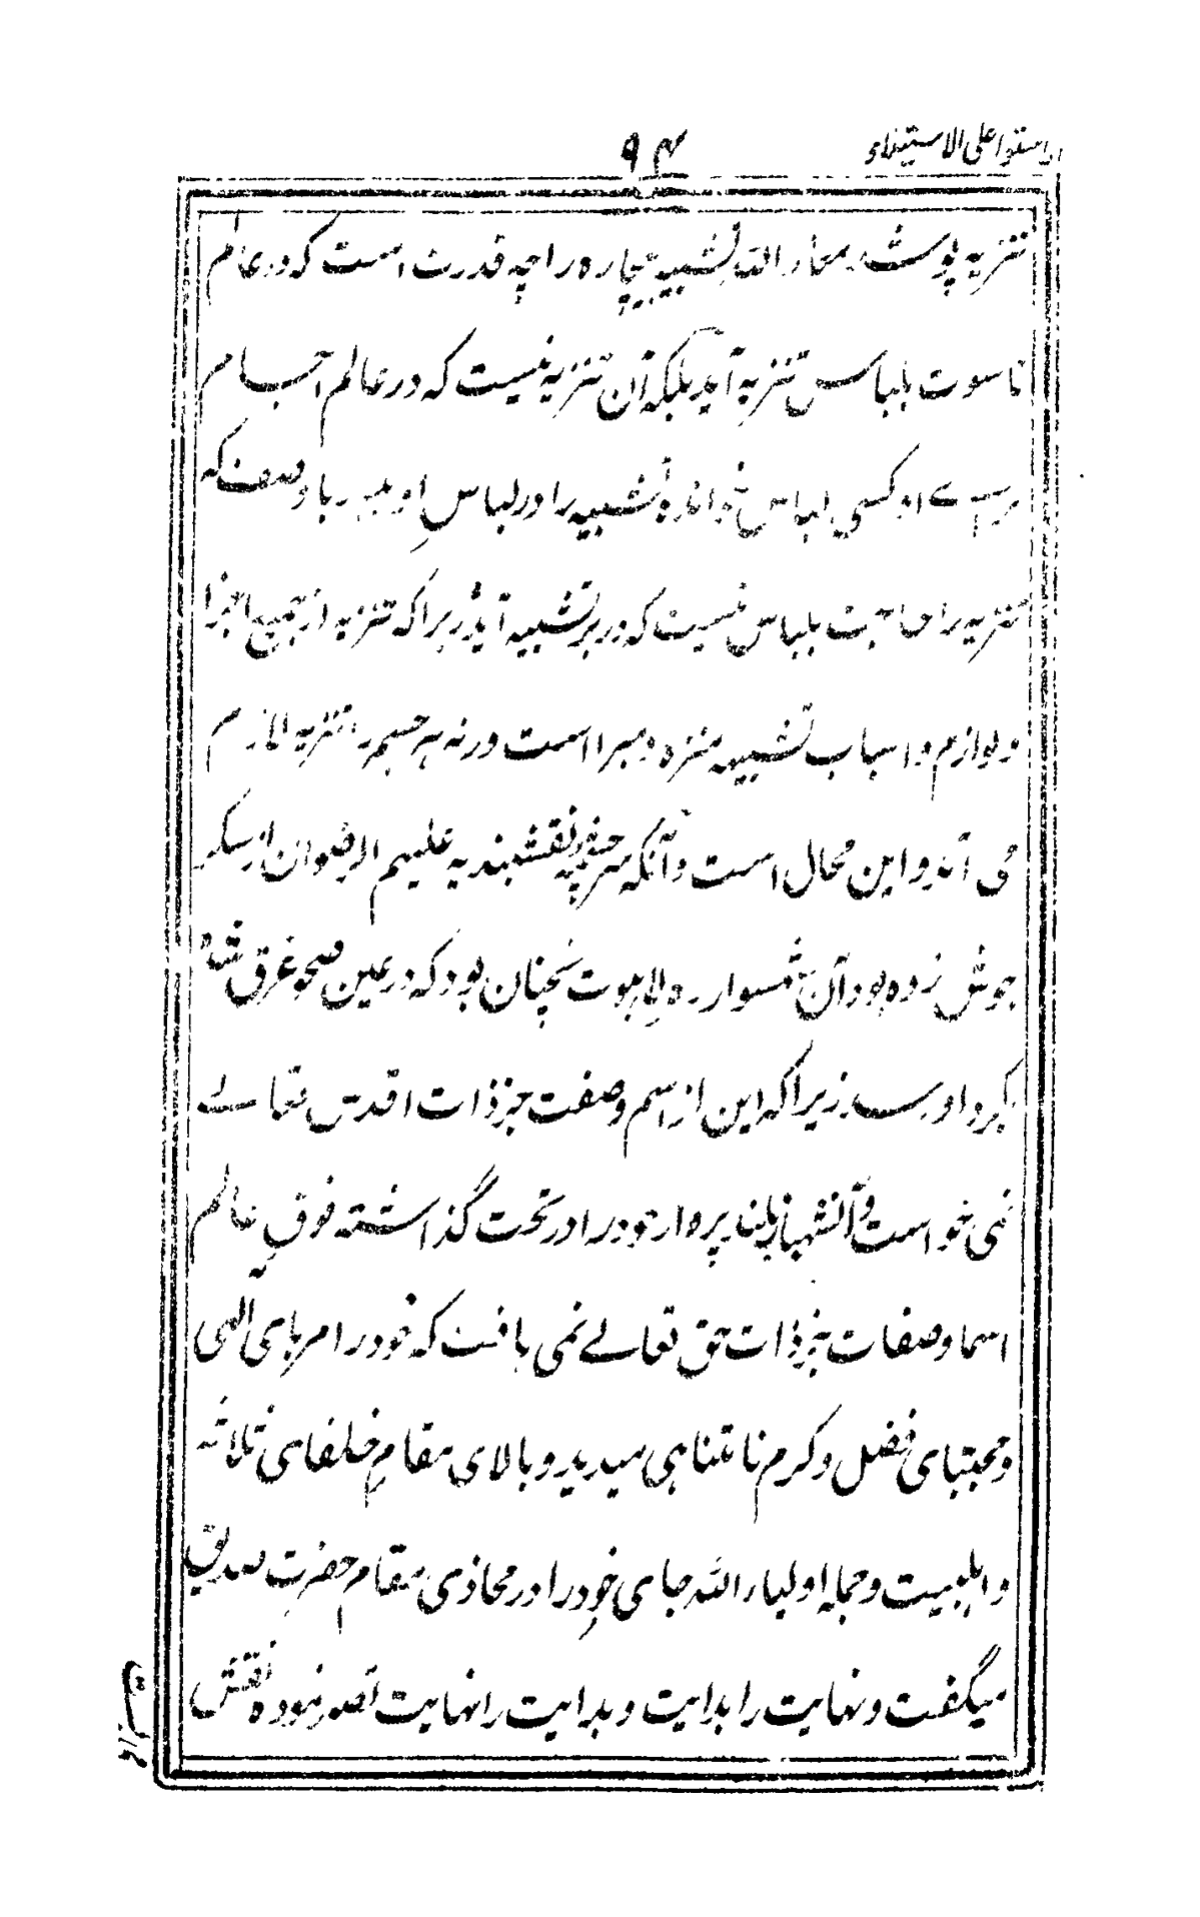 استوا علی الاستیفاء
۹۴
تنزیه پوشد معاذ الله تشبیه بیچاره را چه قدرت است که در عالم
ناسوت بلباس تنزیه آید بلکه آن تنزیه نیست که در عالم اجسام
کسی لباس تشبیه را در لباس او با وصف که
تنزیه را حاجت بلباس نیست که در بر تشبیه آید زیرا که تنزیه از جمیع اجزا
و لوازم و اسباب تشبیه منزه و مبرا است ورنه هر جسم را تنزیه لازم
می آید و این محال است و آنکه سرحلقه نقشبندیه علیهم الرضوان از سکر
جوش زده بود آن شهسوار ره لاهوت نچنان بود که در عین صحو غرق شده
بگرد او رسد زیرا که این از اسم و صفت جز ذات اقدس تعالے
نمی خواست و آنشهباز بلند پرواز خود را در تحت گذاشته فوق عالم
اسما و صفات بجز ذات حق تعالے نمی یافت که خود را مربای الهی
و مجتبای فضل و کرم نامتناهی میدید و بالای مقام خلفای ثلاثه
و اهلبیت و جمله اولیاء الله جای خود را در محاذی مقام حضرت صدیق
میگفت و نهایت را بدایت و بدایت را نهایت تصور نموده نقش